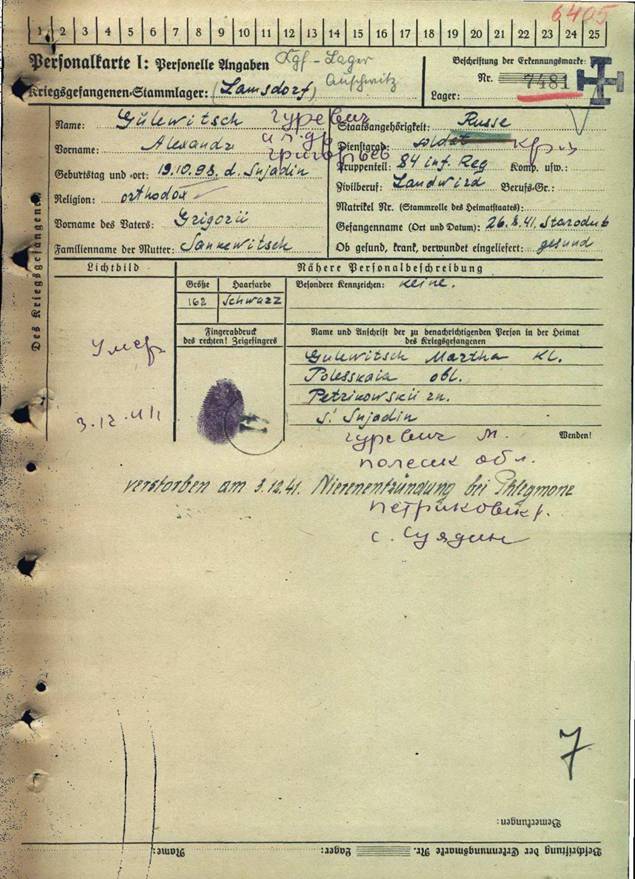 6405
1 2 3 4 5 6 7 8 9 10 11 12 13 14 15 16 17 18 19 20 21 22 23 24 25
Personalkarte I: Personelle Angaben Kgf-Lager
Auschwitz
Kriegsgefangenen-Stammlager: (Lamsdorf)
Beschriftung der Erkennungsmarke:
Nr. 7481
Lager:
Des Kriegsgefangenen
Name: Gulewitsch гуревич
Vorname: Alexandr
григорьев
Geburtstag und -ort: 19.10.98. d. Sujadin
Religion: orthodox
Vorname des Vaters: Grigorii
Familienname der Mutter: Sankewitsch
Staatsangehörigkeit: Russe
Dienstgrad: Soldat
Truppenteil: 84 inf. Reg Komp. usw.:
Zivilberuf: Landwird Berufs-Gr.:
Matrikel Nr. (Stammrolle des Heimatstaates):
Gefangenname (Ort und Datum): 26.8.41. Starodub
Ob gesund, krank, verwundet eingeliefert: gesund
Lichtbild
Nähere Personalbeschreibung
Größe Haarfarbe
162 Schwarz
Besondere Kennzeichen: keine.
Fingerabdruck
des rechten! Zeigefingers
Name und Anschrift der zu benachrichtigenden Person in der Heimat
des Kriegsgefangenen
Gulewitsch Martha Kl.
Polesskaia obl.
Petrikowskii rn.
s. Sujadin
Умер
3.12.41
Wenden!
гуревич М.
полеск обл.
verstorben am 3.12.41. Nierenentzündung bei Phlegmone
с. Суядин
7
Bemerkungen:
Beschriftung der Erkennungsmarke Nr. Lager: Name: